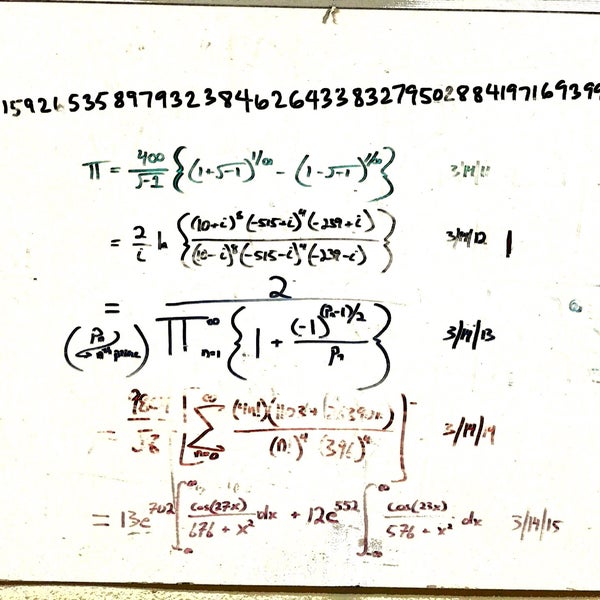 159265358979323846264338327950288419716939
π = 400/√-1 {(1+√-1)^1/∞ - (1-√-1)^1/∞} 3/14/11
= 2/i ln {(10+i)^8 (-515+i)^4 (-239+i) / (10-i)^8 (-515-i)^4 (-239-i)} 3/14/12
= 2 / ∏_{n=1}^∞ {1 + (-1)^{(Pn-1)/2} / Pn} 3/14/13
(Pn → nth prime)
= [∑_{n=0}^∞ (4n!)( / (n!)^4 (396)^4n]^- 3/14/14
= 13e^702 ∫_{-∞}^∞ cos(27x)/676 + x² dx + 12e^552 ∫_{-∞}^∞ cos(23x)/576 + x² dx 3/14/15